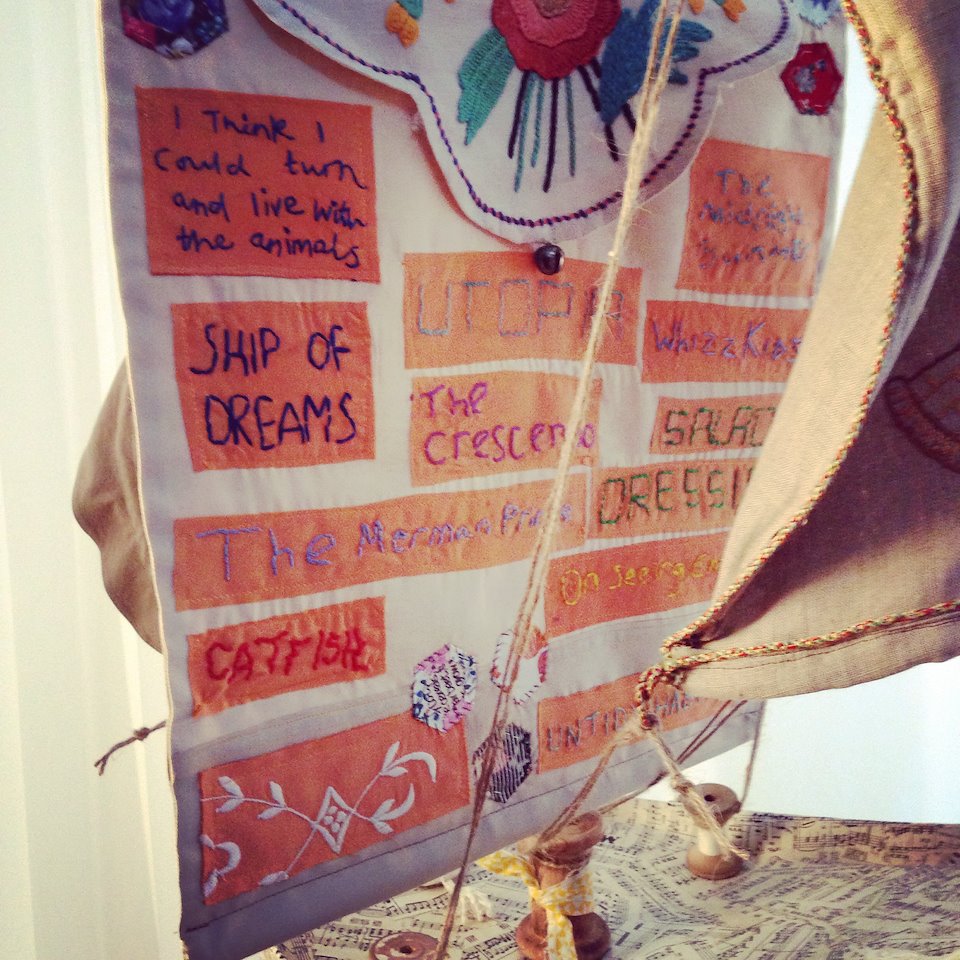 I Think I
could turn
and live with
the animals
SHIP OF
DREAMS
The
UTOPIA
WhizzKids
The
Crescendo
SALAD
DRESSI
The Merman
On Seeing
CATFISH